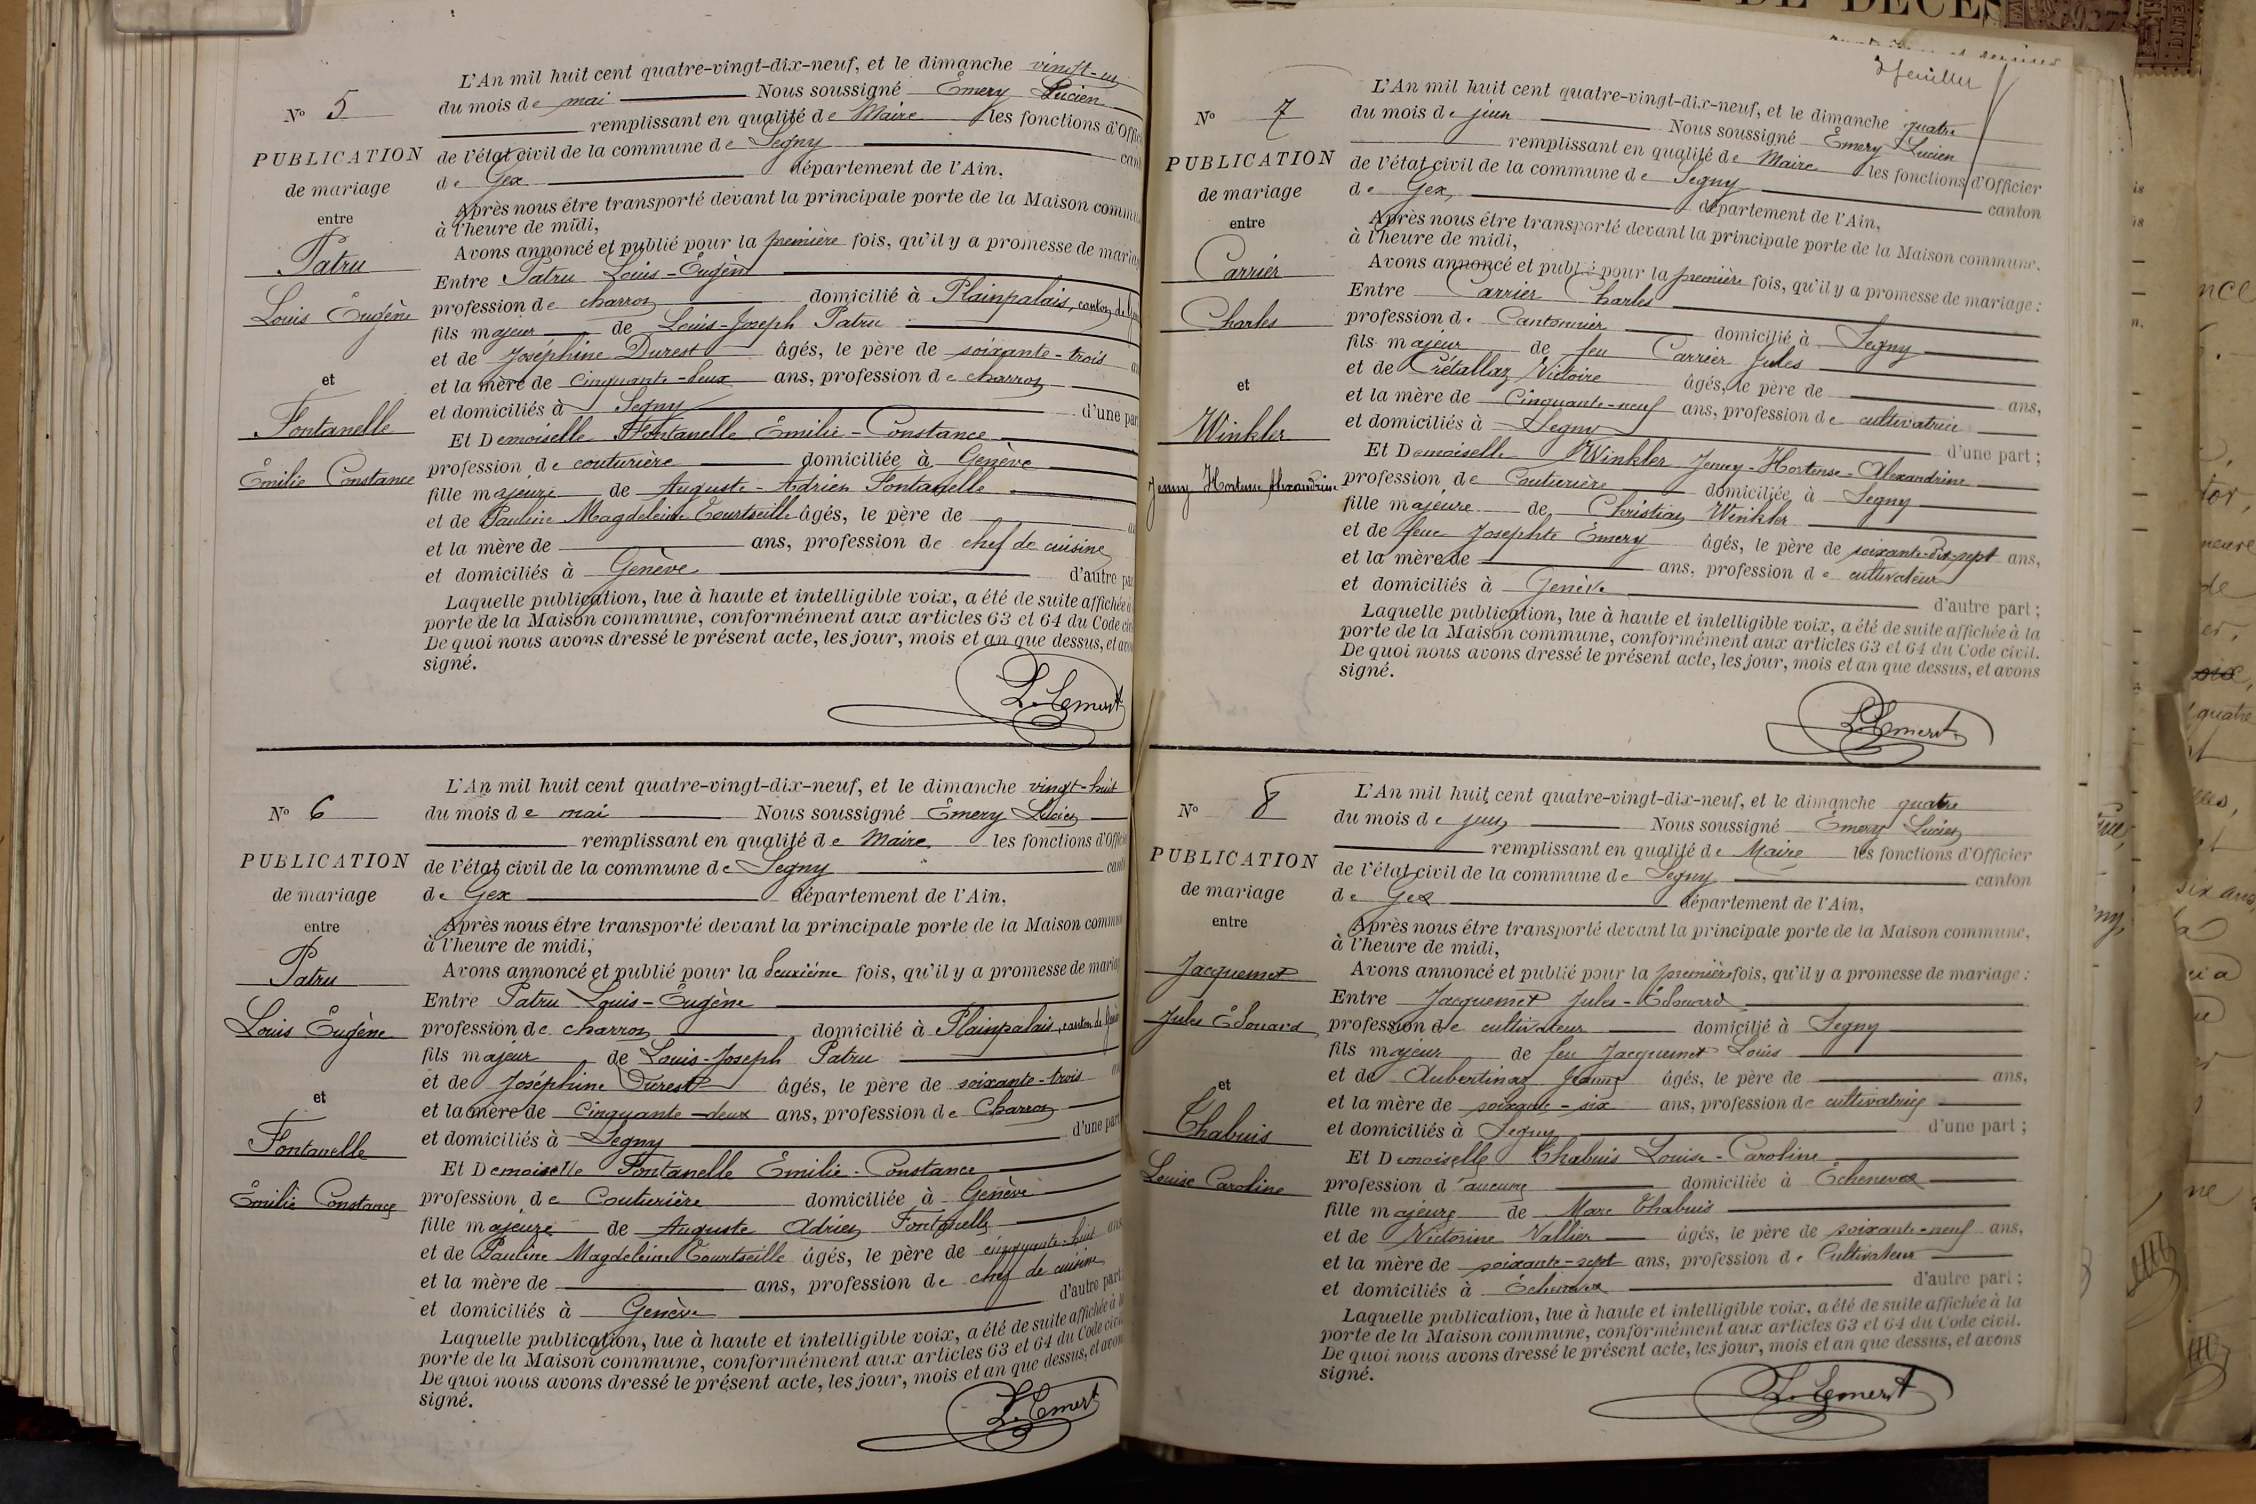 L'An mil huit cent quatre-vingt-dix-neuf, et le dimanche vingt-un
No 5
du mois de mai Nous soussigné Émery Lucien
remplissant en qualité de Maire les fonctions d'Offici
PUBLICATION
de l'état civil de la commune de Segny cant
de mariage
de Gex département de l'Ain,
entre
Après nous être transporté devant la principale porte de la Maison commu
à l'heure de midi,
Patru
Avons annoncé et publié pour la première fois, qu'il y a promesse de mariag
Entre Patru Louis-Eugène
Louis Eugène
profession de charron domicilié à Plainpalais, canton de
fils majeur de Louis-Joseph Patru
et de Joséphine Durest âgés, le père de soixante-trois
et
et la mère de cinquante-deux ans, profession de charron
et domiciliés à Segny d'une part
Fontanelle
Et Demoiselle Fontanelle Émilie-Constance
profession de couturière domiciliée à Genève
Émilie Constance
fille majeure de Auguste-Adrien Fontanelle
et de Pauline Magdeleine Courtseille âgés, le père de
et la mère de ans, profession de chef de cuisine
et domiciliés à Genève d'autre par
Laquelle publication, lue à haute et intelligible voix, a été de suite affichée à
porte de la Maison commune, conformément aux articles 63 et 64 du Code civ
De quoi nous avons dressé le présent acte, les jour, mois et an que dessus, et avo
signé.
L. Emery
L'An mil huit cent quatre-vingt-dix-neuf, et le dimanche vingt-huit
No 6
du mois de mai Nous soussigné Émery Lucien
remplissant en qualité de Maire les fonctions d'Offici
PUBLICATION
de l'état civil de la commune de Segny canto
de mariage
de Gex département de l'Ain,
entre
Après nous être transporté devant la principale porte de la Maison commun
à l'heure de midi,
Patru
Avons annoncé et publié pour la deuxième fois, qu'il y a promesse de mariag
Entre Patru Louis-Eugène
Louis Eugène
profession de charron domicilié à Plainpalais, canton de Genève
fils majeur de Louis-Joseph Patru
et de Joséphine Durest âgés, le père de soixante-trois
et
et la mère de cinquante-deux ans, profession de Charron
et domiciliés à Segny d'une part
Fontanelle
Et Demoiselle Fontanelle Émilie-Constance
Émilie Constance
profession de Couturière domiciliée à Genève
fille majeure de Auguste Adrien Fontanelle
et de Pauline Magdeleine Courtseille âgés, le père de cinquante-huit ans
et la mère de ans, profession de chef de cuisine
et domiciliés à Genève d'autre part
Laquelle publication, lue à haute et intelligible voix, a été de suite affichée à l
porte de la Maison commune, conformément aux articles 63 et 64 du Code civi
De quoi nous avons dressé le présent acte, les jour, mois et an que dessus, et avon
signé.
L. Emery
DE DÉCÈS
feuillet
L'An mil huit cent quatre-vingt-dix-neuf, et le dimanche quatre
No 7
du mois de juin Nous soussigné Émery Lucien
remplissant en qualité de Maire les fonctions d'Officier
PUBLICATION
de l'état civil de la commune de Segny canton
de mariage
de Gex, département de l'Ain,
entre
Après nous être transporté devant la principale porte de la Maison commune,
à l'heure de midi,
Carrier
Avons annoncé et publié pour la première fois, qu'il y a promesse de mariage :
Entre Carrier Charles
Charles
profession de Cantonnier domicilié à Segny
fils majeur de feu Carrier Jules
et de Crétallaz Victoire âgés, le père de ans,
et
et la mère de Cinquante-neuf ans, profession de cultivatrice
et domiciliés à Segny d'une part ;
Winkler
Et Demoiselle Winkler Jenny-Hortense-Alexandrine
Jenny Hortense Alexandrine
profession de Couturière domiciliée à Segny
fille majeure de Christian Winkler
et de feue Josephte Émery âgés, le père de soixante-dix-sept ans,
et la mère de ans, profession de cultivateur
et domiciliés à Genève d'autre part ;
Laquelle publication, lue à haute et intelligible voix, a été de suite affichée à la
porte de la Maison commune, conformément aux articles 63 et 64 du Code civil.
De quoi nous avons dressé le présent acte, les jour, mois et an que dessus, et avons
signé.
L. Emery
L'An mil huit cent quatre-vingt-dix-neuf, et le dimanche quatre
No 8
du mois de juin Nous soussigné Émery Lucien
remplissant en qualité de Maire les fonctions d'Officier
PUBLICATION
de l'état civil de la commune de Segny canton
de mariage
de Gex département de l'Ain,
entre
Après nous être transporté devant la principale porte de la Maison commune,
à l'heure de midi,
Jacquemet
Avons annoncé et publié pour la première fois, qu'il y a promesse de mariage :
Entre Jacquemet Jules-Édouard
Jules Édouard
profession de cultivateur domicilié à Segny
fils majeur de feu Jacquemet Louis
et de Aubertinaz Jeanne âgés, le père de ans,
et
et la mère de soixante-six ans, profession de cultivatrice
Chabuis
et domiciliés à Segny d'une part ;
Et Demoiselle Chabuis Louise-Caroline
Louise Caroline
profession d'aucune domiciliée à Échenevex
fille majeure de Marc Chabuis
et de Victorine Vallier âgés, le père de soixante-neuf ans,
et la mère de soixante-sept ans, profession de Cultivateur
et domiciliés à Échenevex d'autre part ;
Laquelle publication, lue à haute et intelligible voix, a été de suite affichée à la
porte de la Maison commune, conformément aux articles 63 et 64 du Code civil.
De quoi nous avons dressé le présent acte, les jour, mois et an que dessus, et avons
signé.
L. Emery